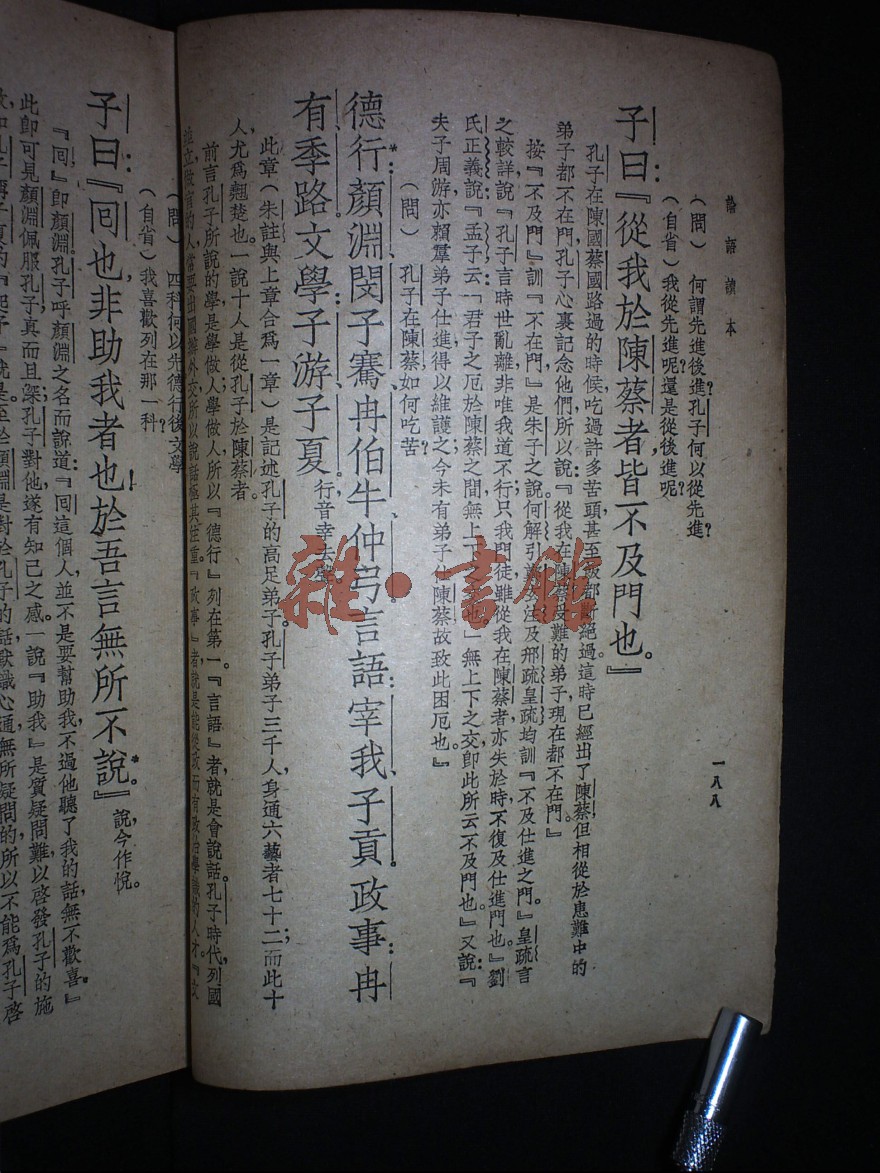 論語讀本
一八八
(問) 何謂先進後進?孔子何以從先進?
(自省)我從先進呢?還是從後進呢?
子曰:『從我於陳蔡者,皆不及門也。』
孔子在陳國蔡國路過的時侯,吃過許多苦頭,甚至飯都斷絕過。這時已經出了陳蔡,但相從於患難中的
弟子都不在門,孔子心裏記念他們,所以說:『從我在陳蔡受難的弟子,現在都不在門。』
按『不及門』訓『不在門』,是朱子之說。何解引鄭注及邢疏皇疏均訓『不及仕進之門。』皇疏言
之較詳,說『孔子言時世亂離,非唯我道不行,只我門徒雖從我在陳蔡者,亦失於時,不復及仕進門也。』劉
氏正義說:『孟子云「君子之厄於陳蔡之間,無上下之交也。」無上下之交,卽此所云不及門也。』又說:『
夫子周游,亦賴羣弟子仕進,得以維護之;今未有弟子仕陳蔡,故致此困厄也。』
(問) 孔子在陳蔡如何吃苦?
德行:顏淵、閔子騫、冉伯牛、仲弓。言語:宰我、子貢。政事:冉
有、季路。文學:子游、子夏。行音幸,去聲。
此章(朱註與上章合爲一章)是記述孔子的高足弟子。孔子弟子三千人,身通六藝者七十二;而此十
人尤爲翹楚也。一說十人是從孔子於陳蔡者。
前言孔子所說的學,是學做人,學做人所以『德行』列在第一。『言語』者,就是會說話,孔子時代,列國
並立,做官的人,常要出國辦外交,所以說話極其注重。『政事』者,就是能從政而有政治學識的人才。『文
(問) 四科何以先德行後文學?
(自省)我喜歡列在那一科?
子曰:『回也,非助我者也!於吾言無所不說。』說,今作悅。
『回』卽顏淵。孔子呼顏淵之名而說道:『回這個人,並不是要幫助我,不過他聽了我的話,無不歡喜。』
此卽可見顏淵佩服孔子,眞而且深;孔子對他,遂有知己之感。一說『助我』是質疑問難,以啓發孔子的施
就是。至於顏淵是對於孔子的話,默識心通,無所疑問的,所以不能爲孔子啓